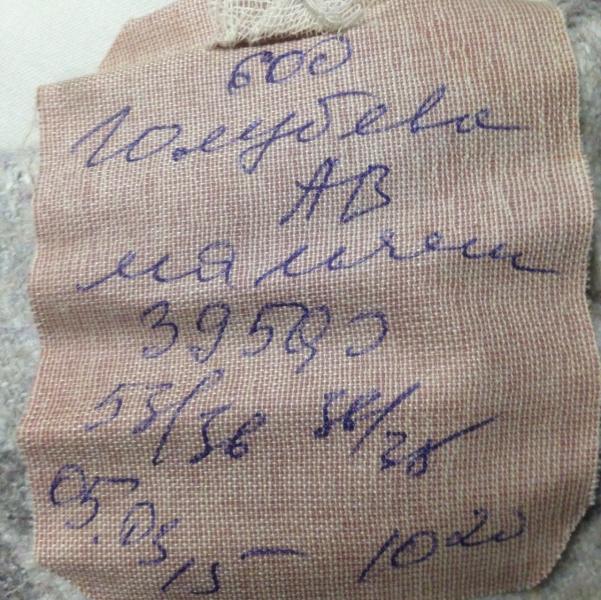 600
Голубева
АВ
мальчик
3950,0
53/36 36/35
05.03.15 — 10 20